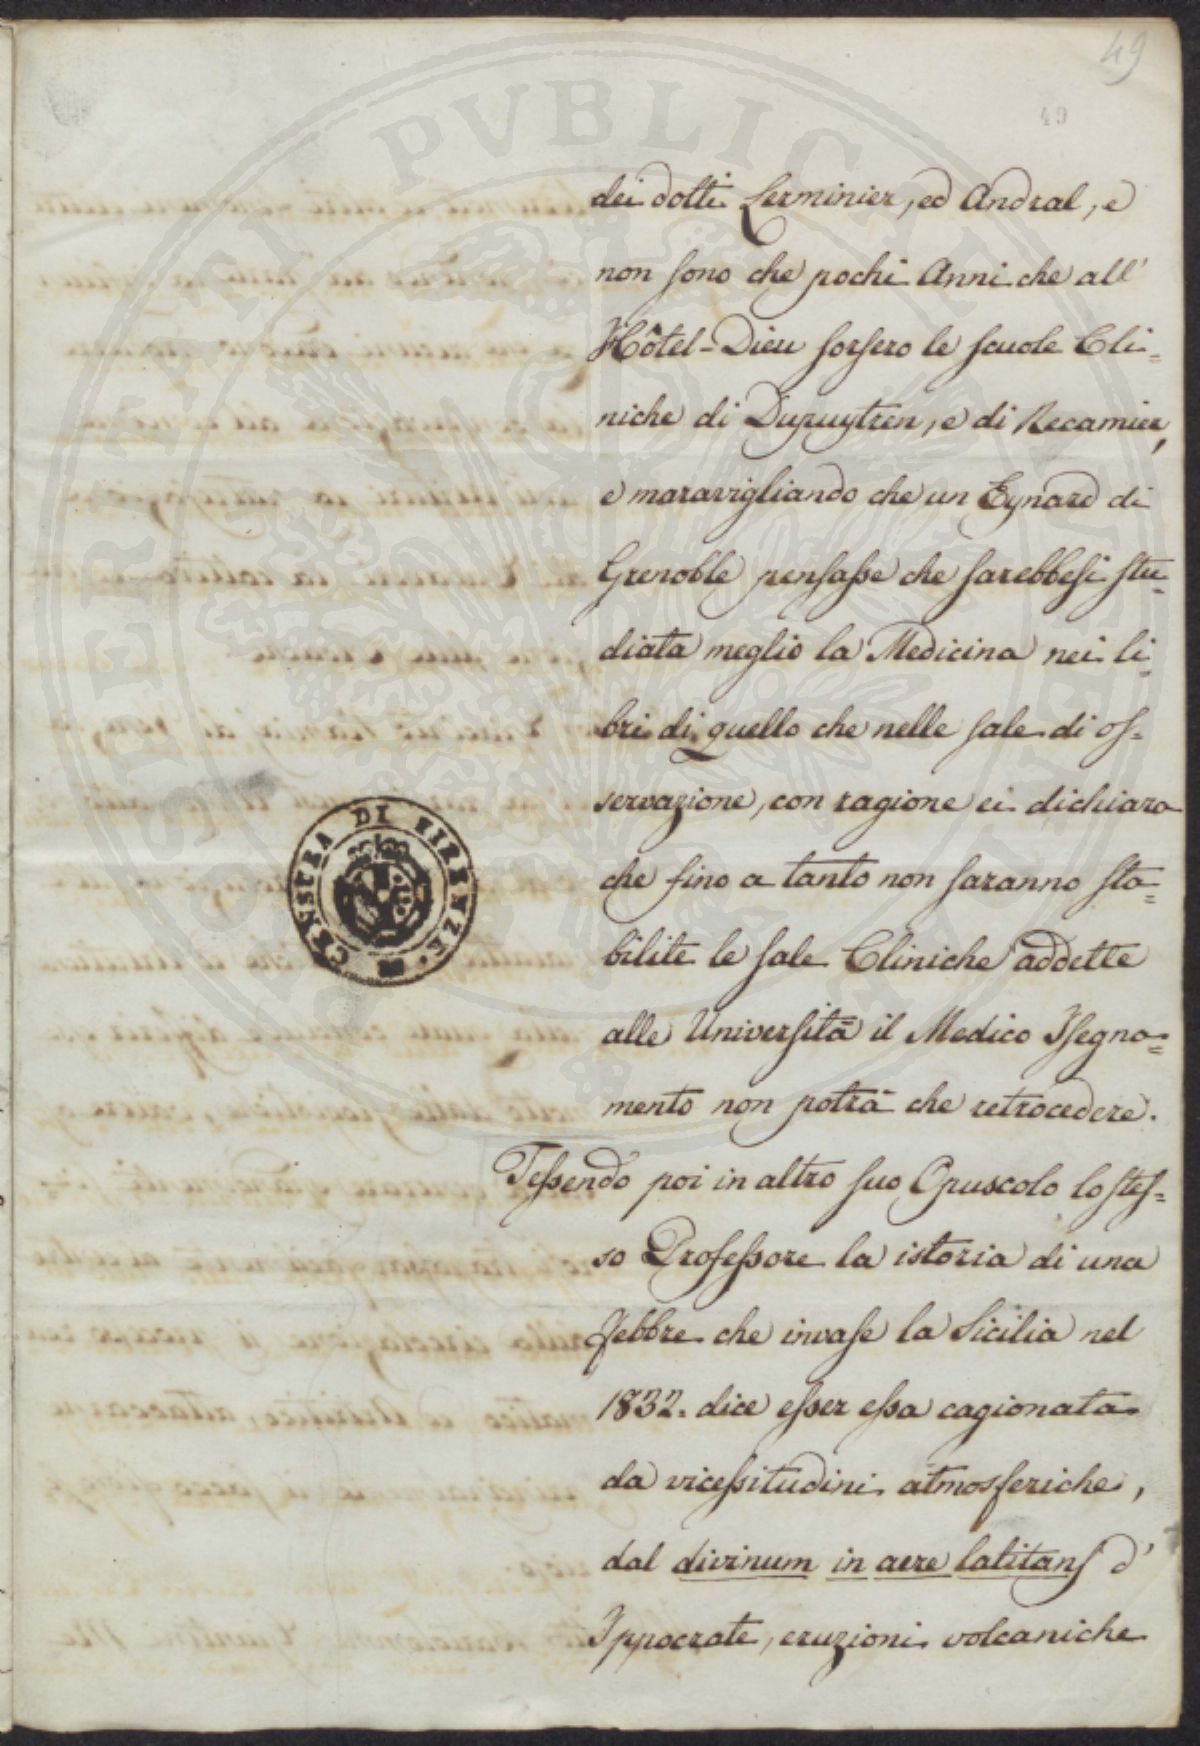 49
49
dei dotti Lerminier, ed Andral, e
non sono che pochi Anni che all'
Hôtel-Dieu sorsero le scuole Cli=
niche di Dupuytren, e di Recamier,
e maravigliando che un Eynard di
Grenoble pensasse che sarebbesi stu=
diata meglio la Medicina nei li=
bri di quello che nelle sale di os=
servazione, con ragione ei dichiara
che fino a tanto non saranno sta=
bilite le sale Cliniche addette
alle Università il Medico Isegna=
mento non potrà che retrocedere.
Tessendo poi in altro suo Opuscolo lo stes=
so Professore la istoria di una
Febbre che invase la Sicilia nel
1832. dice esser essa cagionata
da vicessitudini atmosferiche,
dal divinum in aere latitans d'
Ippocrate, eruzioni volcaniche
CENSURA DI FIRENZE